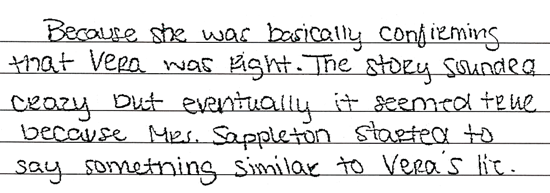 Because she was basically confirming
that Vera was right. The story sounded
crazy but eventually it seemed true
because Mrs. Sappleton started to
say something similar to Vera's lie.